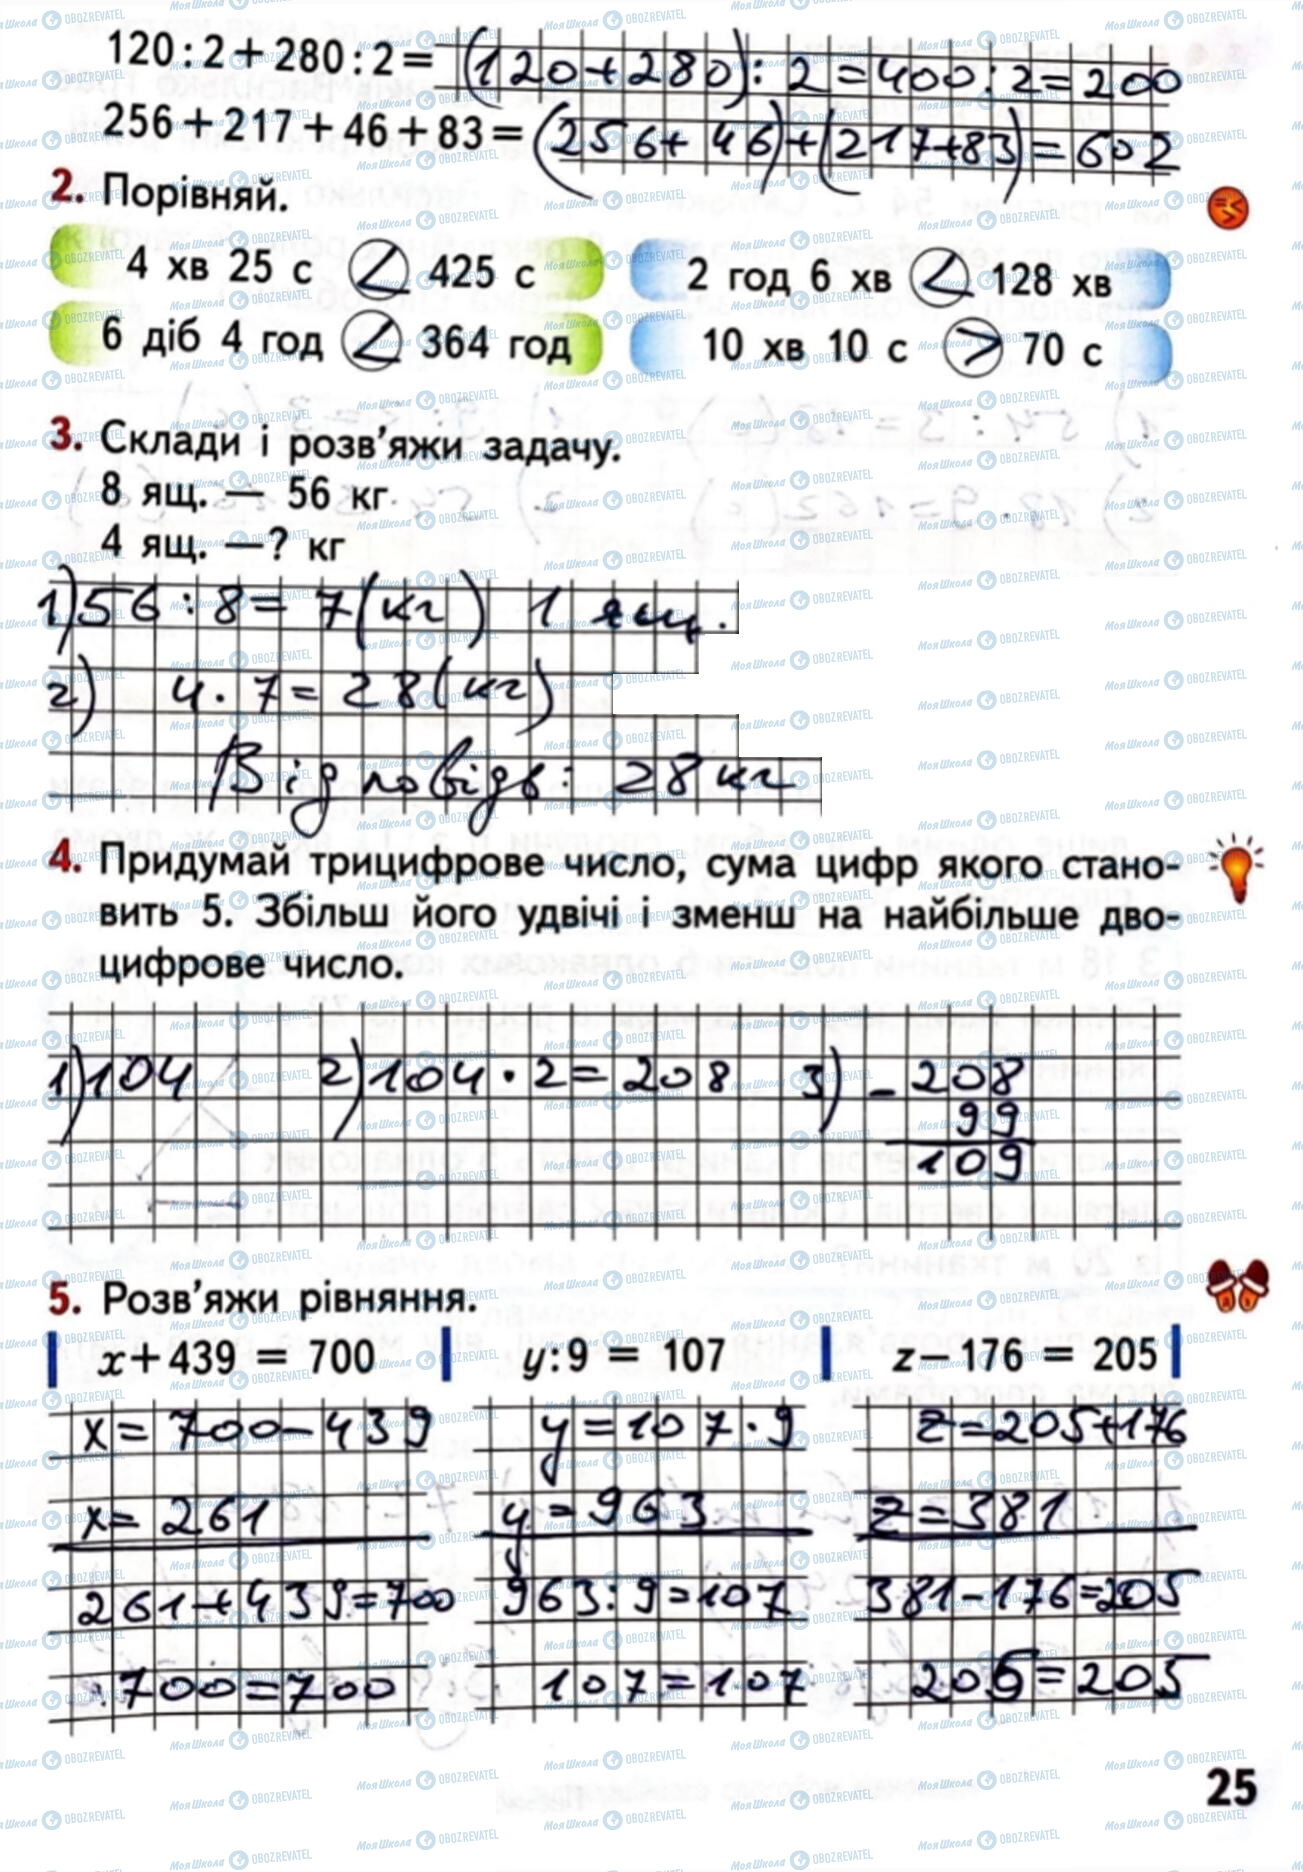 120:2+280:2= (120+280):2=400:2=200
256+217+46+83= (256+46)+(217+83)=602
2. Порівняй.
4 хв 25 с < 425 с 2 год 6 хв < 128 хв
6 діб 4 год < 364 год 10 хв 10 с > 70 с
3. Склади і розв'яжи задачу.
8 ящ. — 56 кг
4 ящ. —? кг
1) 56:8=7(кг) 1 ящ.
2) 4·7=28(кг)
Відповідь: 28 кг
4. Придумай трицифрове число, сума цифр якого стано-
вить 5. Збільш його удвічі і зменш на найбільше дво-
цифрове число.
1) 104 2) 104·2=208 3) -208
99
109
5. Розв'яжи рівняння.
x+439 = 700 y:9 = 107 z-176 = 205
x=700-439 y=107·9 z=205+176
x=261 y=963 z=381
261+439=700 963:9=107 381-176=205
700=700 107=107 205=205
25
МояШкола OBOZREVATEL